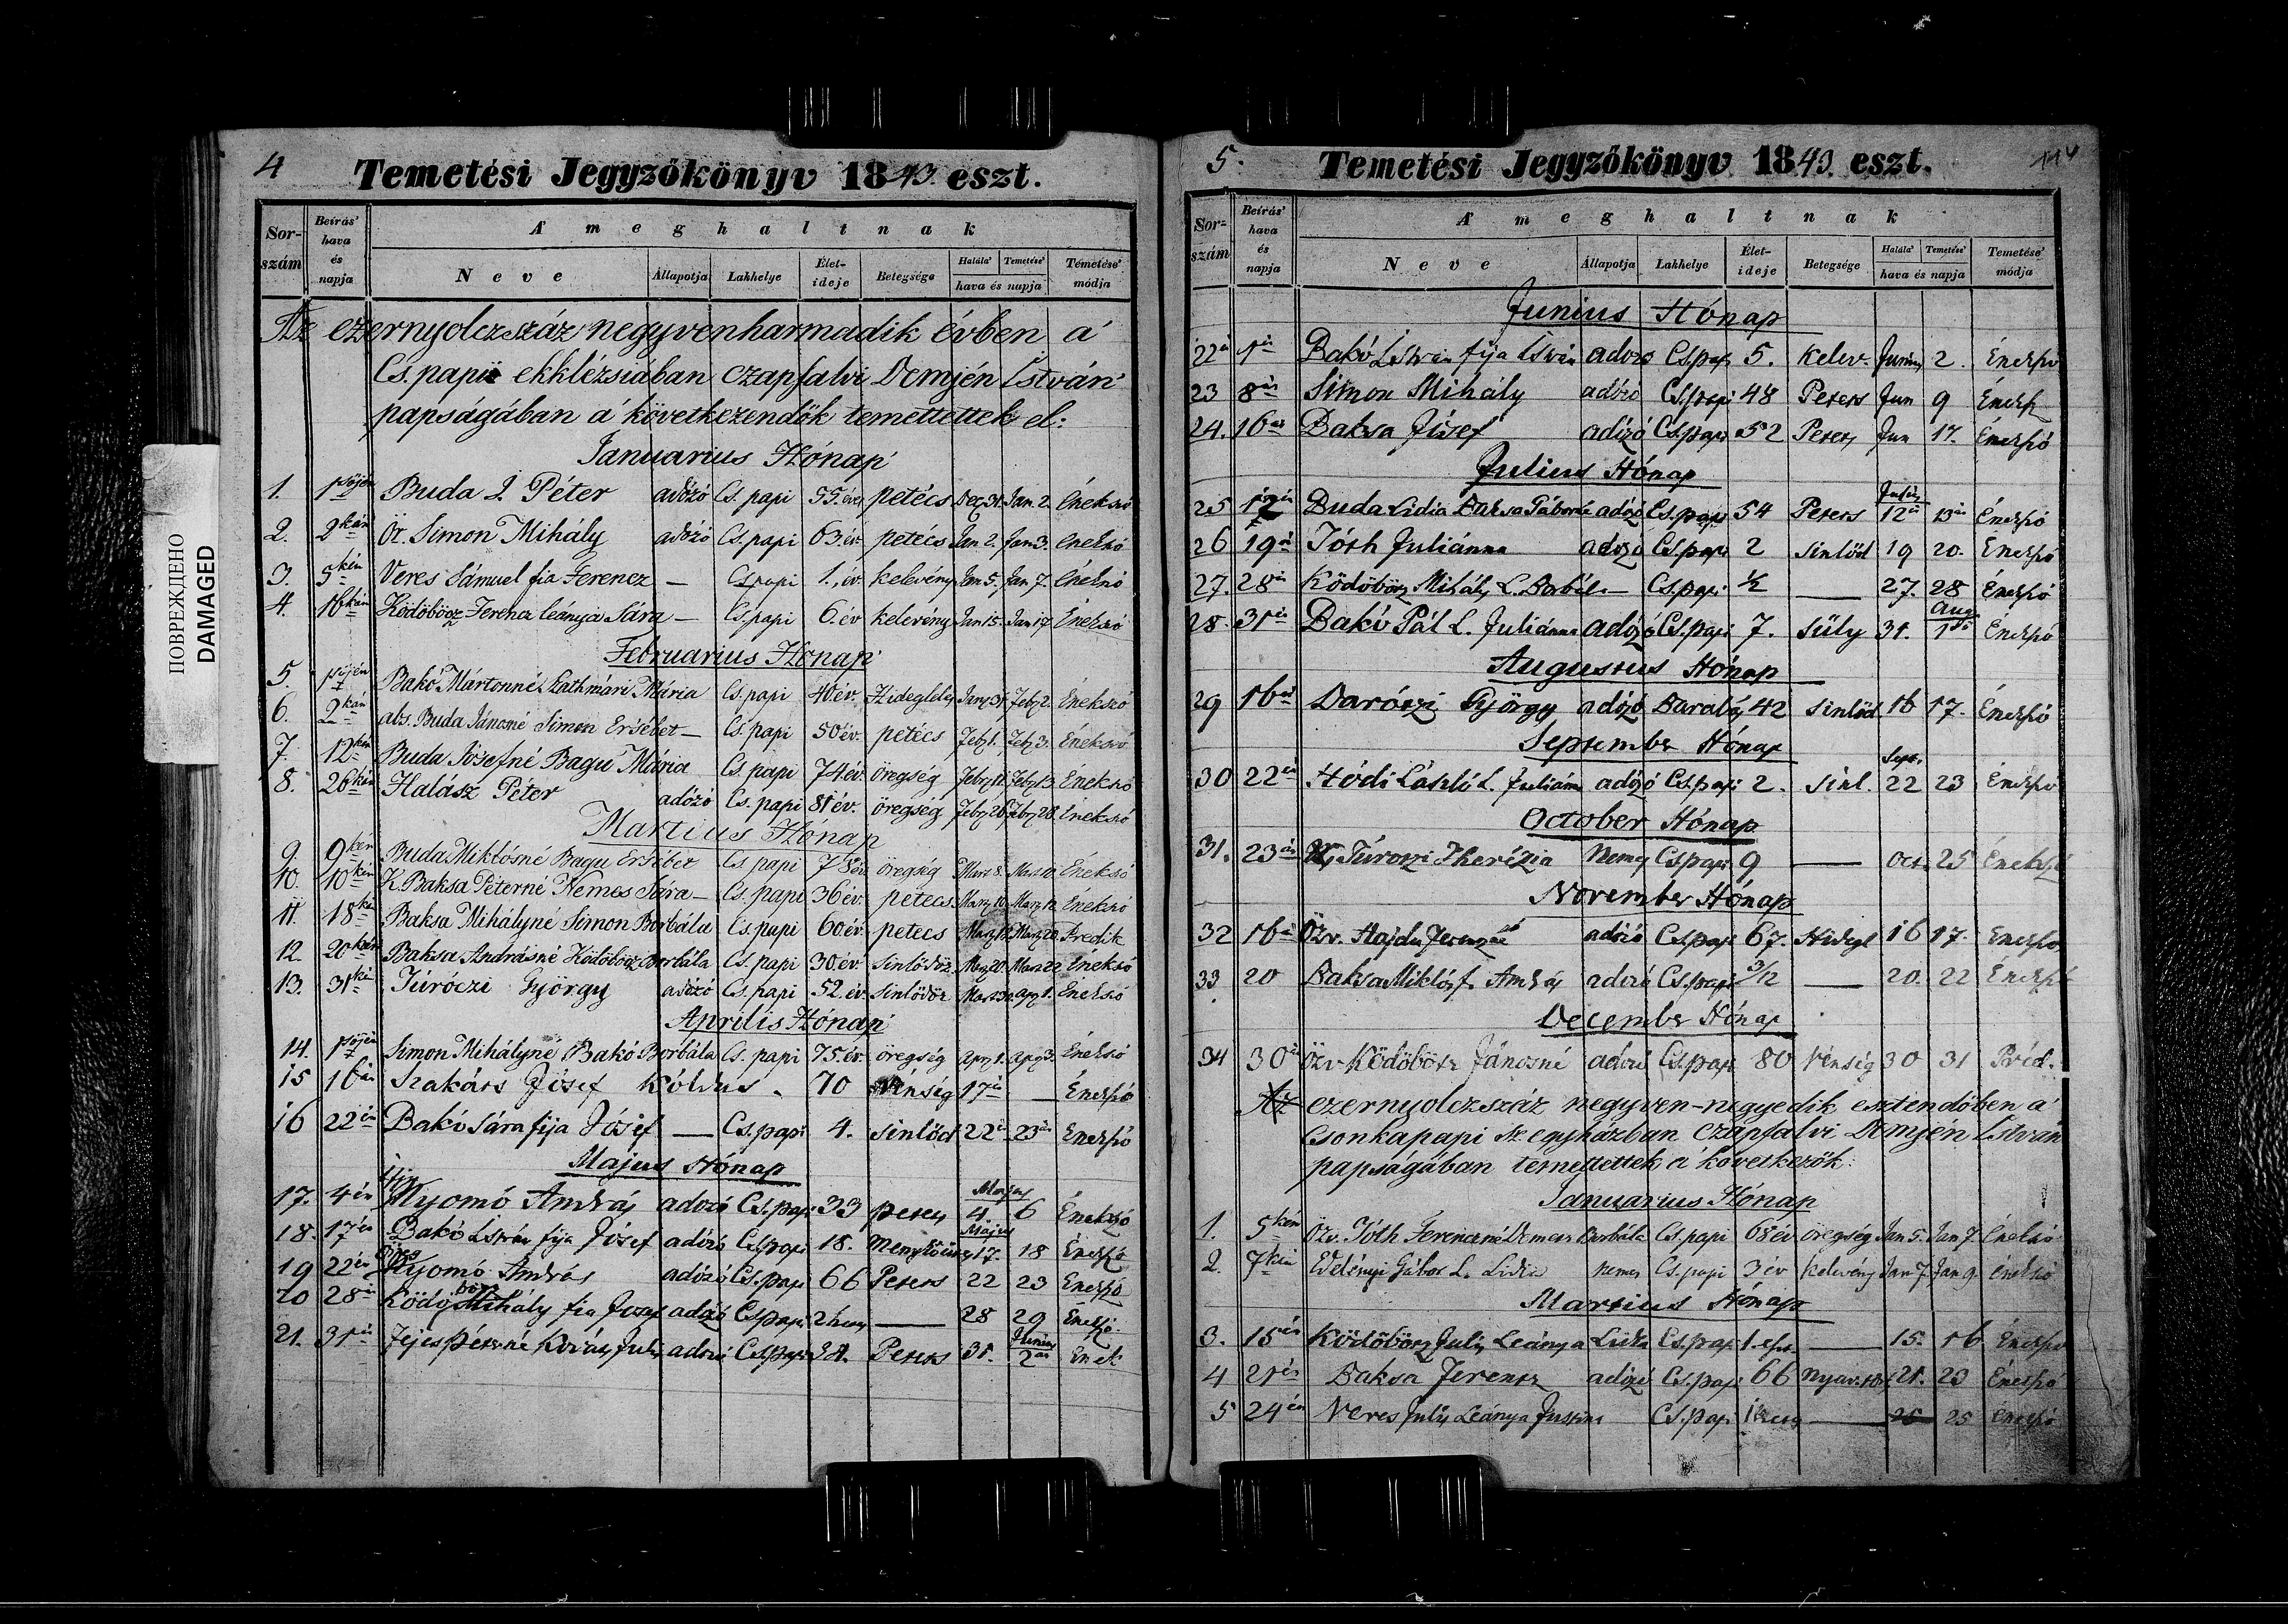 ПОВРЕЖДЕНО
DAMAGED
4
Temetési Jegyzőkönyv 1843. eszt.
Sor-szám Beírás' hava és napja A' meghaltnak
Neve Állapotja Lakhelye Élet-ideje Betegsége Halála' Temetése' hava és napja Temetése' módja
Az ezernyolczszáz negyvenharmadik évben a'
Cs.papii ekklézsiában czapfalvi Demjén István'
papságában a' következendők temettettek el:
Januarius Hónap
1. 1sőjén Buda I. Péter adózó Cs. papi 55. éves petécs Dec. 31. Jan. 2. Énekszó
2. 2kán Ör. Simon Mihály adózó Cs. papi 63. év. petécs Jan 2. Jan 3. Énekszó
3. 5kén Veres Sámuel fia Ferencz — Cs papi 1. év. kelevény Jan 5. Jan 7. Énekszó
4. 16kán Ködöböcz Ferencz leánya Sára — Cs. papi 6. év kelevény Jan 15. Jan 17 Énekszó
Februarius Hónap
5. 1sőjén Bakó Mártonné Zathmári Mária Cs. papi 40 év. Hideglelés Jan. 31. Feb. 2. Énekszó
6. 2kán abs. Buda Jánosné Simon Ersébet — Cs. papi 50 év. petécs Feb 1. Feb 3. Énekszó
7. 12kén Buda Jósefné Bagu Mária Cs. papi 74 év. öregség Feb. 11. Feb. 13. Énekszó
8. 26kán Halász Péter adózó Cs. papi 81 év. öregség Feb. 26. Feb. 28. Énekszó
Martius Hónap
9. 9kén Buda Miklósné Bagu Ersébet Cs papi 78 év öregség Mart 8. Mart 10. Énekszó
10. 10kén K. Baksa Péterné Nemes Sára — Cs. papi 36 év. petécs Mart 10. Mart 12. Énekszó
11. 18kán Baksa Mihályné Simon Borbála Cs papi 60 év. petecs Mart 18. Mart 20. Predik
12. 20kán Baksa Andrásné Ködöböcz Borbála Cs. papi 30. év. sinlődöz. Mart 20. Mart 22. Énekszó
13. 31kén Túróczi György adózó Cs. papi 52. év. sinlődöz Mart 30. apr. 1. Énekszó
Aprílis Hónap
14. 1sőjén Simon Mihályné Bakó Borbála Cs. papi 75 év. öregség apr. 1. apr. 3. Énekszó
15 16án Szakács Jósef Kóldus - 70 Vénség 17én — Énekszó
16 22én Bakó Sára fija Jósef — Cs. papi 4. sinlőd 22én 23án Énekszó
Majus Hónap
17. 4én Ifjú Nyomó András adozó Cs. papi 33 petecs Majus 4. 6 Énekszó
18. 17én Bakó István fija Jósef adózó Cs. papi 18. Majus 17. 18 Énekszó
19 22én Öreg Nyomó András adózó Cs. papi 66 Petecs 22 23 Énekszó
20 28án Ködöböcz Mihály fia Josef adózó Cs papi 2 28 29 Énekszó
21. 31én Fejes Péterné Kovács Juli adozó Cs. papi Petecs 31. Junius 2án Enek
5. Temetési Jegyzőkönyv 1843. eszt. 114
Sor-szám Beírás' hava és napja A' meghaltnak
Neve Állapotja Lakhelye Élet-ideje Betegsége Halála' Temetése' hava és napja Temetése' módja
Junius Hónap
22 1én Bakó István fija István adozó Cs papi 5. kelev. Junius 2. Énekszó
23 8án Simon Mihály adózó Cs. papi 48 Petecs Jun 9 Éneksz
24. 16án Baksa Jósef adózó Cs. papi 52 Petecs Jun 17. Énekszó
Julius Hónap
25 12én Buda Lidia Baksa Gáborné adózó Cs. papi 54 Petecs Julius 12én 13án Énekszó
26 19én Tóth Juliánna adozó Cs. papi 2 sinlőd 19 20. Énekszó
27. 28án Ködöböcz Mihály L. Borbála — Cs. papi ½ — 27. 28 Énekszó
28. 31én Bakó Pál L. Juliánna adózó Cs. papi 7. süly 31. Aug 1ső Énekszó
Augustus Hónap
29 16án Daróczi György adózó Daroló 42 sinlőd. 16 17. Énekszó
September Hónap
30 22én Hódi László L. Juliánna adózó Cs. papi 2. sinl. Sept. 22 23 Énekszó
October Hónap
31. 23án Túroczi Therézia Nemes Cs papi 9 — Oct. 25 Énekszó
November Hónap
32 16án Özv. Hajdu Ferenczné adózó Cs. papi 67. Hidegl 16 17. Énekszó
33 20 Baksa Miklós f. András adozó Cs. papi 3/12 — 20. 22 Énekszó
December Hónap
34 30án Özv Ködöböcz Jánosné adózó Cs. papi 80 Vénség 30 31 Préd.
Az ezernyolczszáz negyven-negyedik esztendőben a'
Csonkapapi Sz. egyházban czapfalvi Demjén István
papságában temettettek a' következők:
Januarius Hónap
1. 5kén Özv. Tóth Ferenczné Demeter Borbála Cs. papi 68 év öregség Jan 5. Jan 7. Énekszó
2. 7kén Edelényi Gábor L. Lidia nemes Cs. papi 3 év kelevény Jan 7. Jan 9. Énekszó
Martius Hónap
3. 15én Ködöböcz July Leánya Lidia Cs. papi 1. — 15. 16 Énekszó
4 21én Baksa Ferencz adózó Cs. papi 66 21. 23 Énekszó
5 24én Veres July Leánya Justina Cs. papi 25 Énekszó